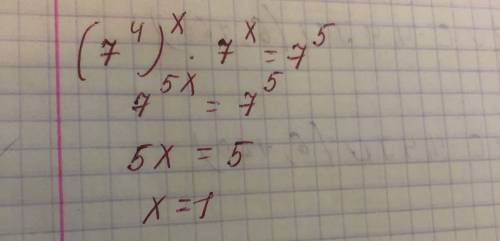 (7⁴)ˣ · 7ˣ = 7⁵
7⁵ˣ = 7⁵
5x = 5
x = 1